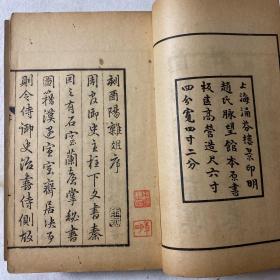 上海涵芬樓景印明
趙氏脉望館本原書
板匡高營造尺六寸
四分寬四寸二分
刻酉陽雜俎序
周官御史主柱下文書秦
因之有石室蘭臺掌秘書
圖籍漢遇宣室齋居決事
則令侍御史治書侍側故